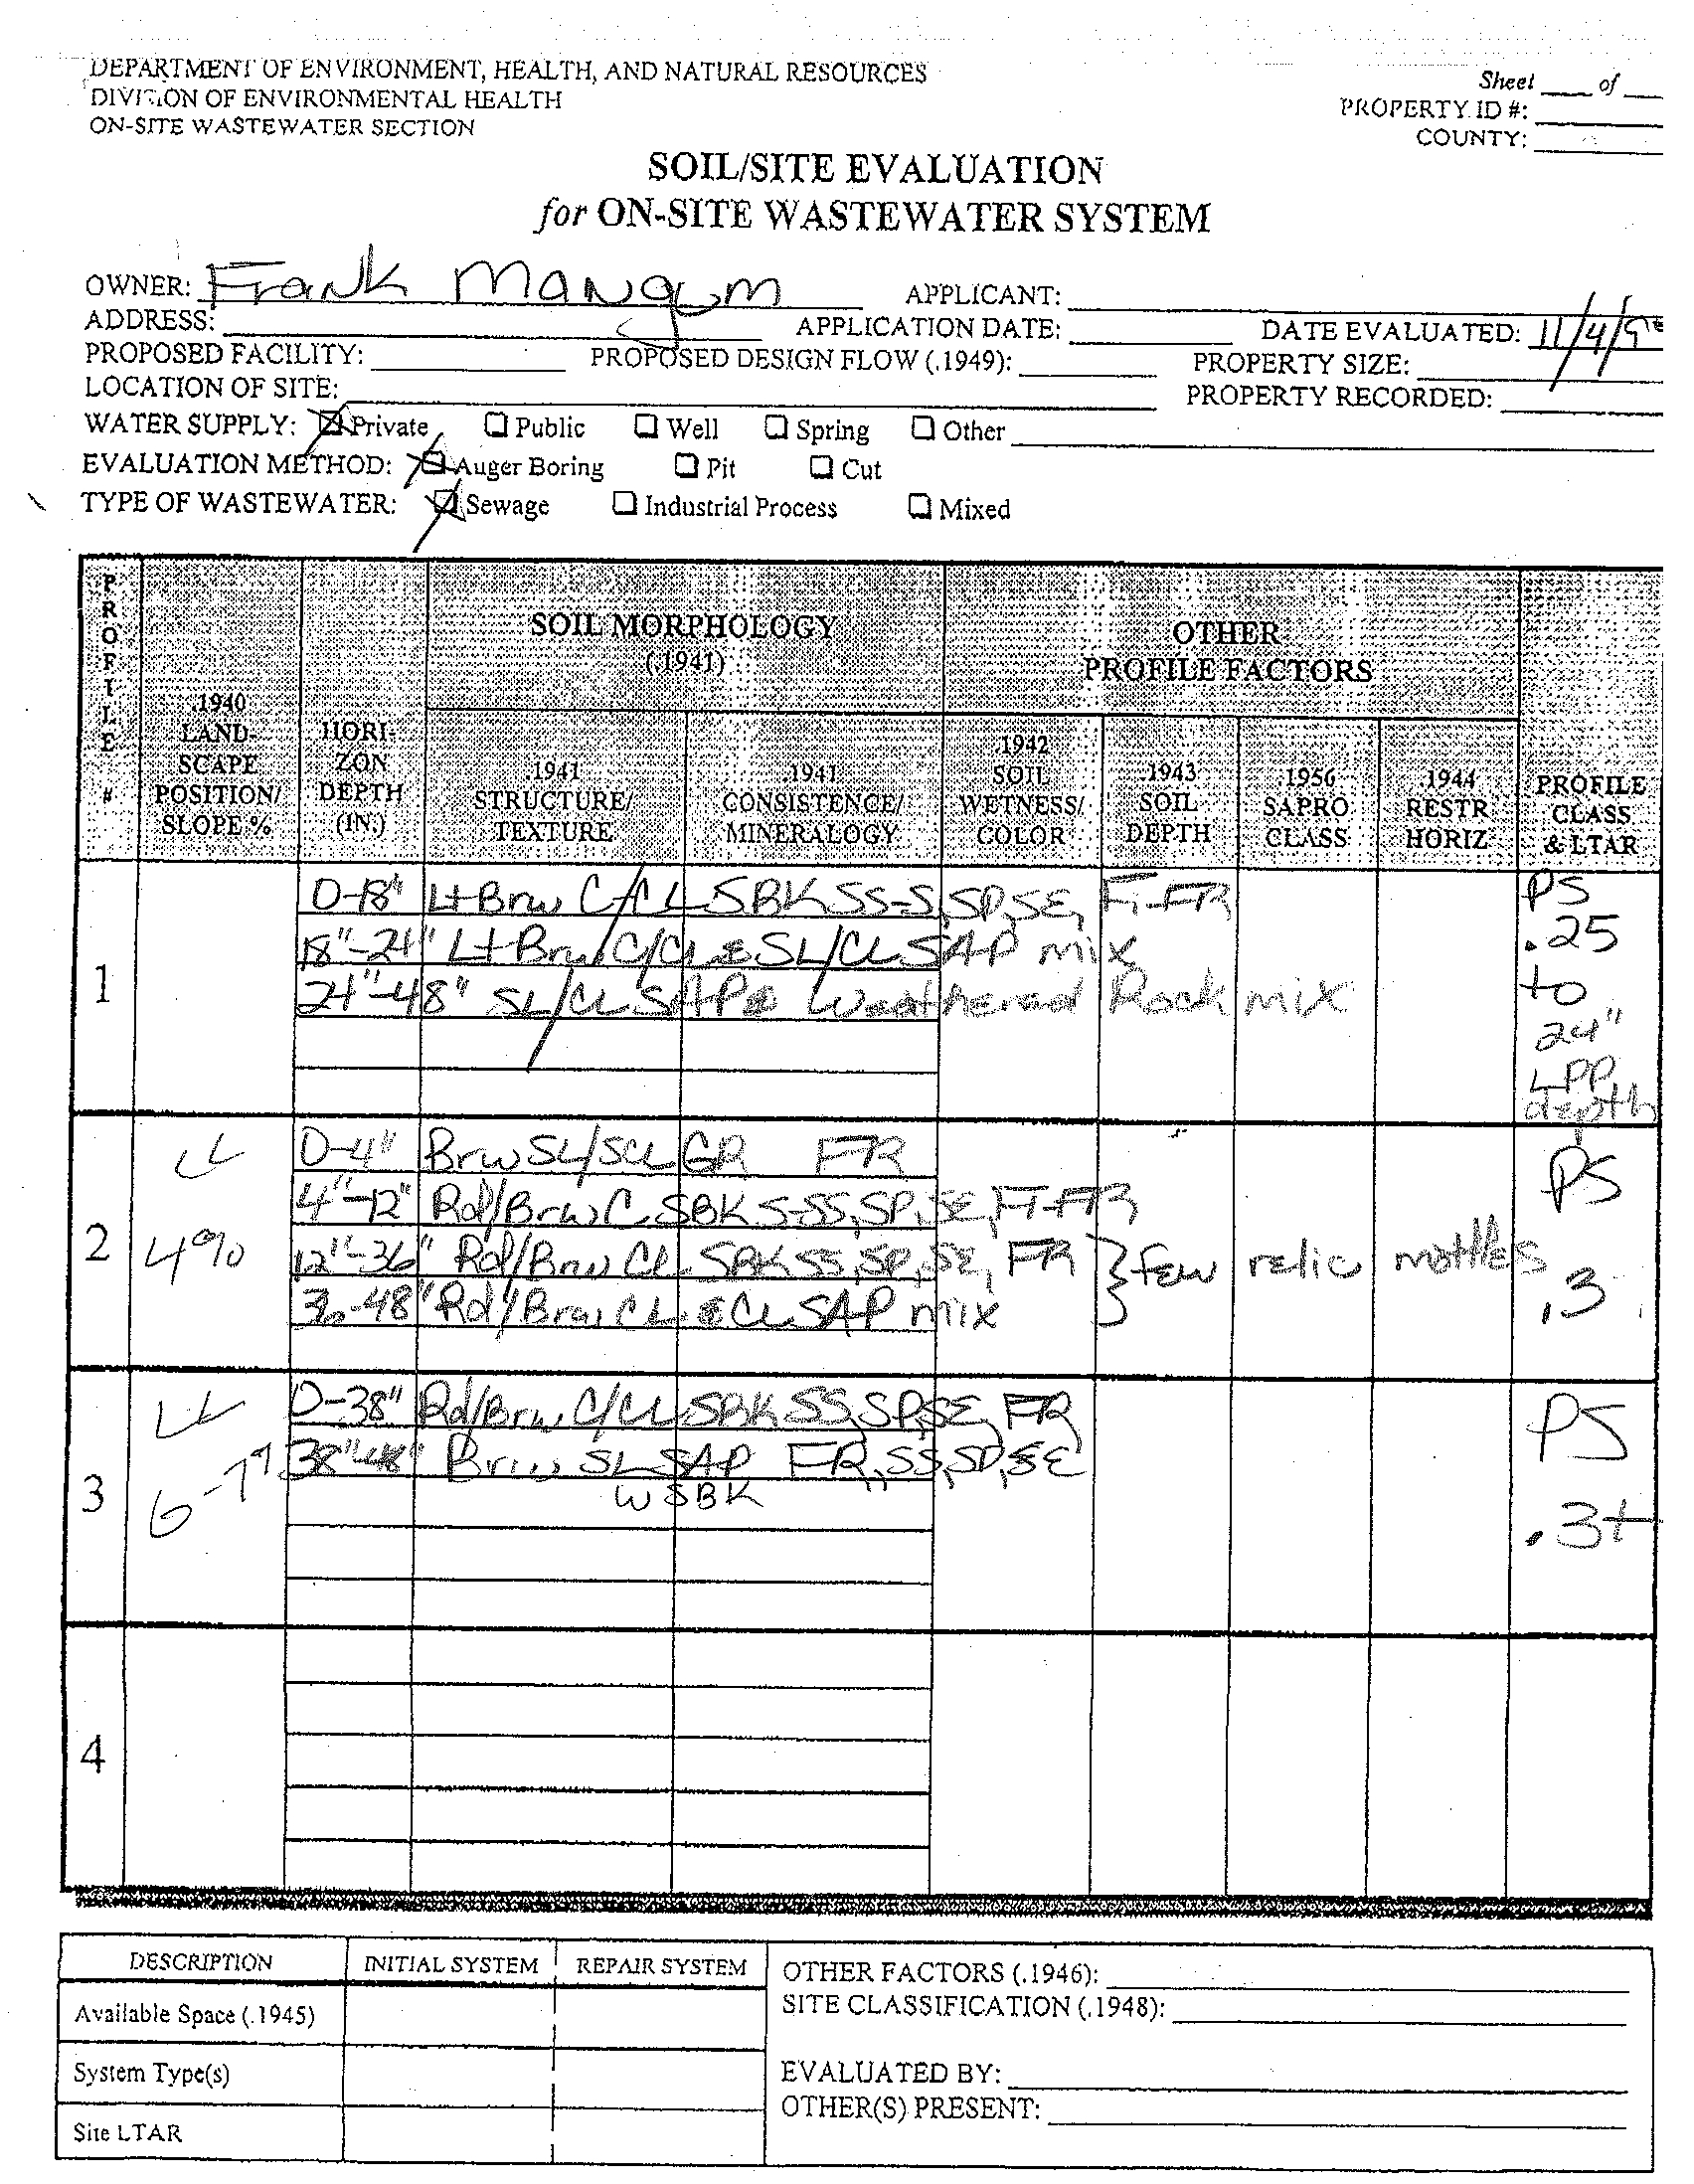 DEPARTMENT OF ENVIRONMENT, HEALTH, AND NATURAL RESOURCES
DIVISION OF ENVIRONMENTAL HEALTH
ON-SITE WASTEWATER SECTION
Sheet ____ of ____
PROPERTY ID #:
COUNTY:
SOIL/SITE EVALUATION
for ON-SITE WASTEWATER SYSTEM
OWNER: Frank Mangum APPLICANT:
ADDRESS: APPLICATION DATE: DATE EVALUATED: 11/4/
PROPOSED FACILITY: PROPOSED DESIGN FLOW (.1949): PROPERTY SIZE:
LOCATION OF SITE: PROPERTY RECORDED:
WATER SUPPLY: ☒ Private ☐ Public ☐ Well ☐ Spring ☐ Other
EVALUATION METHOD: ☒ Auger Boring ☐ Pit ☐ Cut
TYPE OF WASTEWATER: ☒ Sewage ☐ Industrial Process ☐ Mixed
PROFILE #
.1940 LAND-SCAPE POSITION/ SLOPE %
HORI-ZON DEPTH (IN.)
SOIL MORPHOLOGY (.1941)
.1941 STRUCTURE/ TEXTURE
.1941 CONSISTENCE/ MINERALOGY
OTHER PROFILE FACTORS
.1942 SOIL WETNESS/ COLOR
.1943 SOIL DEPTH
.1956 SAPRO CLASS
.1944 RESTR HORIZ
PROFILE CLASS & LTAR
1
0-18" Lt Brw C/CL SBK SS-S, SP, SE, FI-FR
18"-24" Lt Brw C/CL & SL/CL SAP mix
24"-48" SL/CL SAP & Weathered Rock mix
PS
.25
to
24"
LPP
depth
2
LL
4%
0-4" Brw SL/SCL GR FR
4"-12" Rd/Brw C SBK S-SS, SP, SE, FI-FR
12"-36" Rd/Brw CL SBK SS, SP, SE, FR } few relic mottles
36-48" Rd/Brw CL & CL SAP mix
PS
.3
3
LL
6-7%
0-38" Rd/Brw C/CL SBK SS, SP, SE, FR
38"-48" Brw SL SAP FR, SS, SP, SE
W SBK
PS
.3+
4
DESCRIPTION INITIAL SYSTEM REPAIR SYSTEM
Available Space (.1945)
System Type(s)
Site LTAR
OTHER FACTORS (.1946):
SITE CLASSIFICATION (.1948):
EVALUATED BY:
OTHER(S) PRESENT: